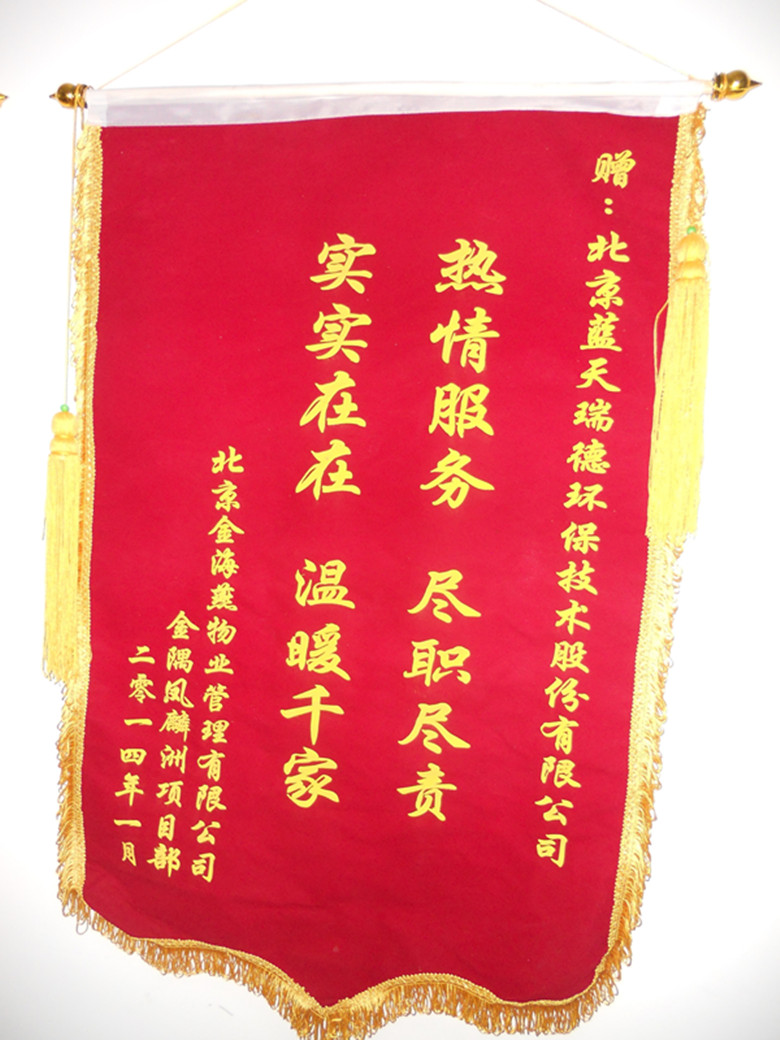 赠：北京蓝天瑞德环保技术股份有限公司
热情服务 尽职尽责
实实在在 温暖千家
北京金海燕物业管理有限公司
金隅凤麟洲项目部
二零一四年一月